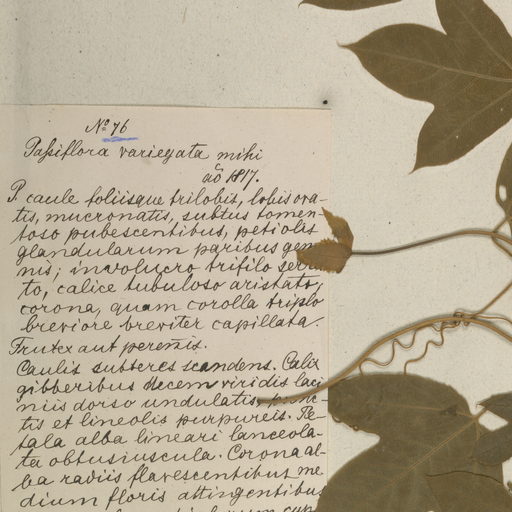 No 76
Paſsiflora variegata mihi
ao 1817.
P. caule foliisque trilobis, lobis ova-
tis, mucronatis, subtus tomen-
toso pubescentibus, petiolis
glandularum paribus gem
nis; involucro trifilo serra
to, calice tubuloso aristato,
corona, quam corolla triplo
breviore breviter capillata.
Frutex aut perennis.
Caulis subteres scandens. Calix
gibberibus decem viridis laci
niis dorso undulatis, punc-
tis et lineolis purpureis. Pe-
tala alba lineari lanceola-
ta obtusiuscula. Corona al-
ba radiis flavescentibus me
dium floris attingentibus